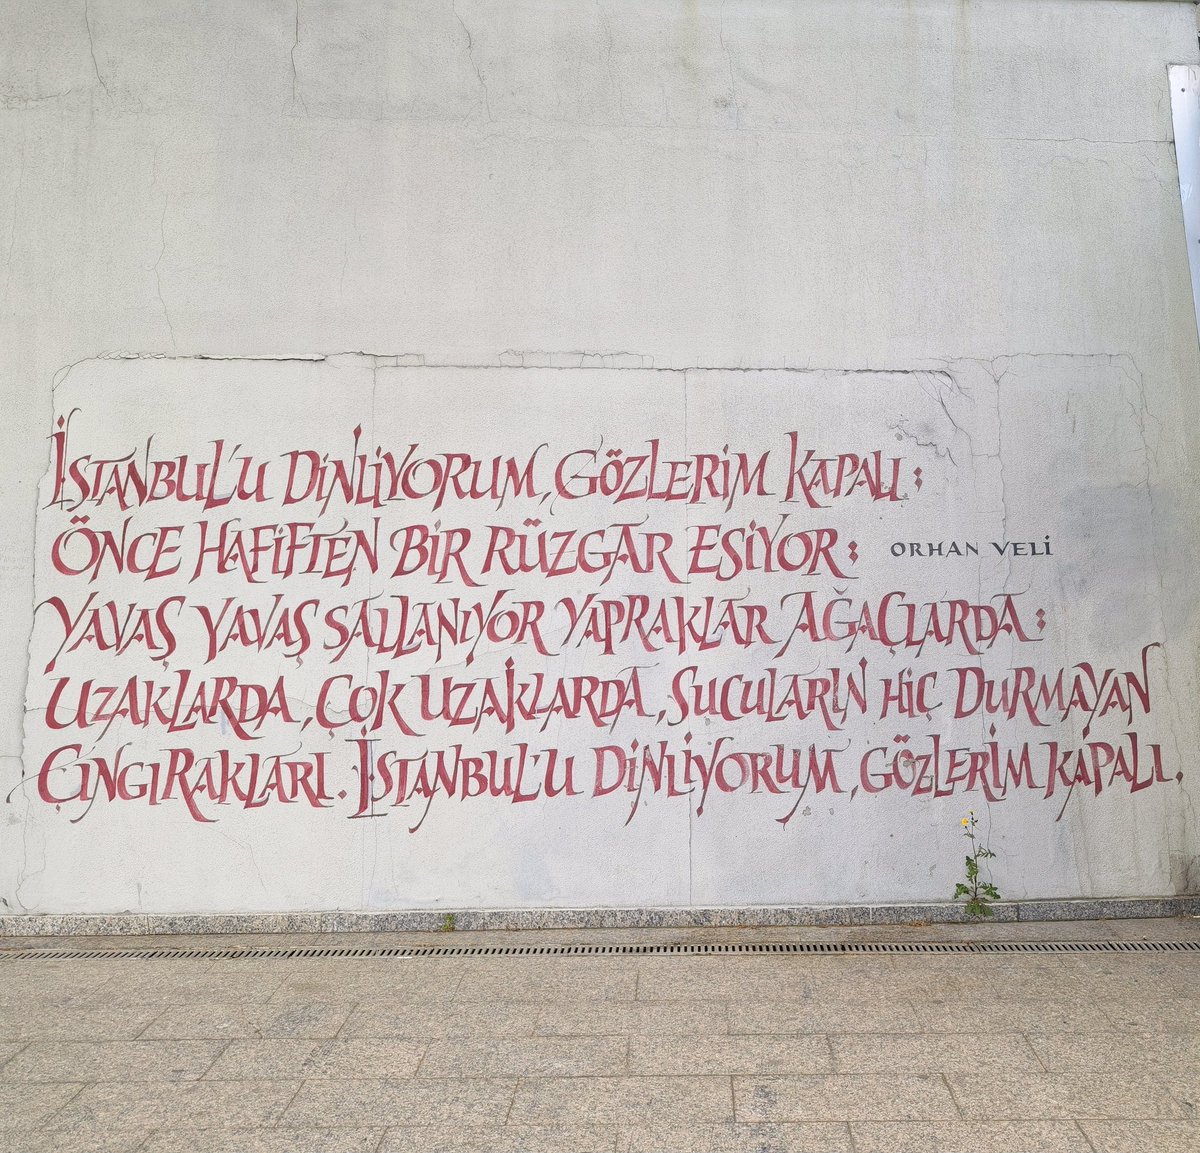 İSTANBUL'U DİNLİYORUM, GÖZLERİM KAPALI;
ÖNCE HAFİFTEN BİR RÜZGAR ESİYOR;
ORHAN VELİ
YAVAŞ YAVAŞ SALLANIYOR YAPRAKLAR AĞAÇLARDA;
UZAKLARDA, ÇOK UZAKLARDA, SUCULARIN HİÇ DURMAYAN
ÇINGIRAKLARI. İSTANBUL'U DİNLİYORUM, GÖZLERİM KAPALI.